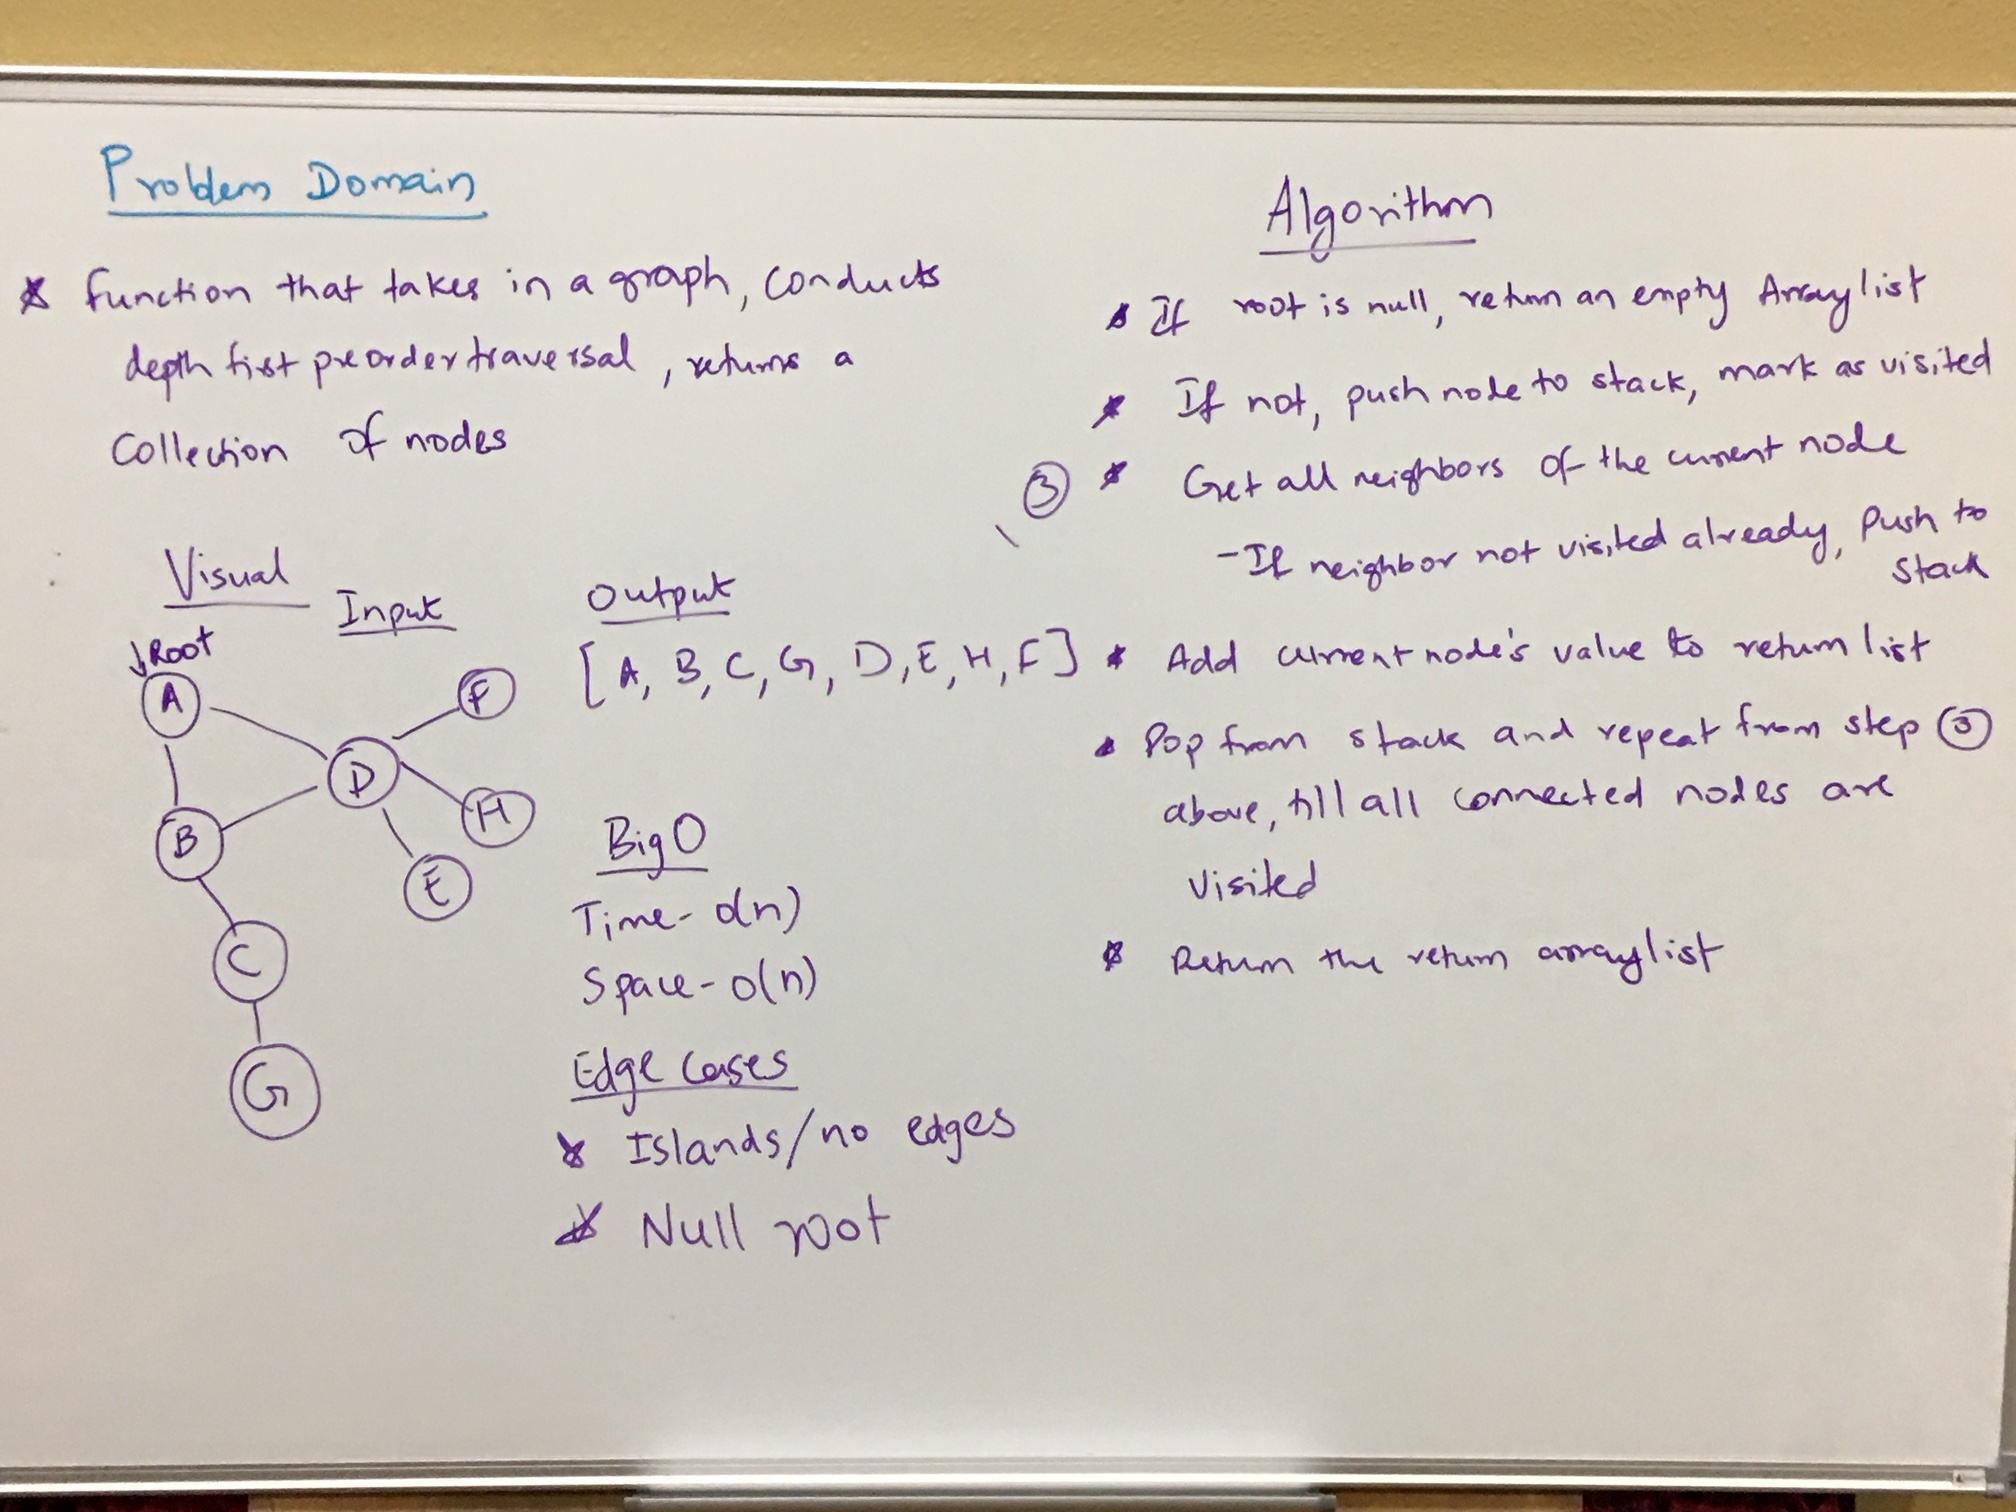 Problem Domain
* function that takes in a graph, conducts
depth first preorder traversal, returns a
Collection of nodes
Visual
Input
Output
↓Root
A
B
C
G
D
F
H
E
[A, B, C, G, D, E, H, F]
Big O
Time - O(n)
Space - O(n)
Edge Cases
* Islands/no edges
* Null root
Algorithm
* If root is null, return an empty Arraylist
* If not, push node to stack, mark as visited
③ * Get all neighbors of the current node
- If neighbor not visited already, Push to
stack
* Add current node's value to return list
* Pop from stack and repeat from step ③
above, till all connected nodes are
visited
* Return the return arraylist